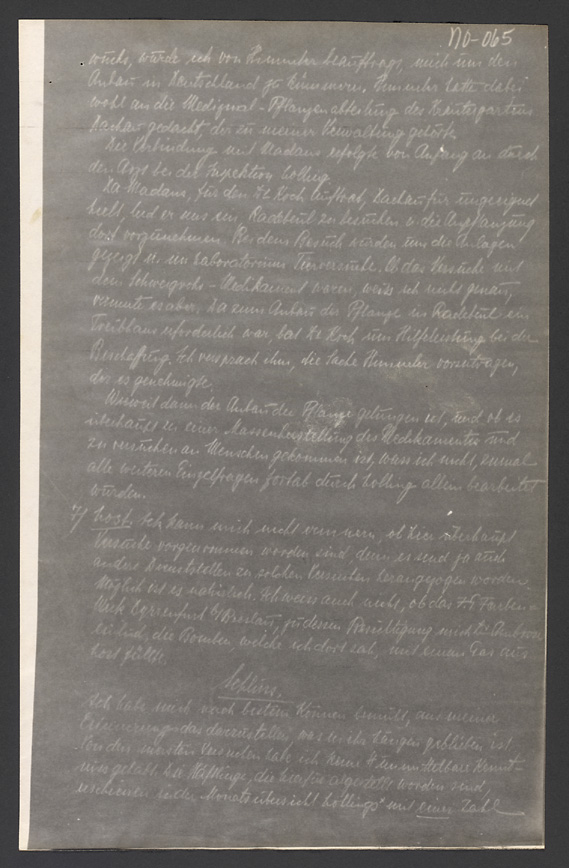 NO-065
wuchs, wurde ich von Himmler beauftragt, mich um den
Anbau in Deutschland zu kümmern. Himmler hatte dabei
wohl an die Medizinal-Pflanzenabteilung des Kräutergartens
Dachau gedacht, der zu meiner Verwaltung gehörte.
Die Verbindung mit Madaus erfolgte von Anfang an durch
den Arzt bei der Inspektion Lolling.
Da Madaus, für den Dr Koch auftrat, Dachau für ungeeignet
hielt, lud er uns ein, Radebeul zu besuchen u. die Anpflanzung
dort vorzunehmen. Bei dem Besuch wurden uns die Anlagen
gezeigt u. im Laboratorium Tierversuche. Ob das Versuche mit
dem Schweigrohr-Medikament waren, weiss ich nicht genau,
vermute es aber. Da zum Anbau der Pflanze in Radebeul ein
Treibhaus erforderlich war, bat Dr Koch um Hilfeleistung bei der
Beschaffung. Ich versprach ihm, die Sache Himmler vorzutragen,
der es genehmigte.
Wieweit dann der Anbau der Pflanze gelungen ist, und ob es
überhaupt zu einer Massenherstellung des Medikamentes und
zu Versuchen an Menschen gekommen ist, weiss ich nicht, zumal
alle weiteren Einzelfragen fortab durch Lolling allein bearbeitet
wurden.
7) Lost. Ich kann mich nicht erinnern, ob hier überhaupt
Versuche vorgenommen worden sind, denn es sind ja auch
andere Dienststellen zu solchen Versuchen herangezogen worden.
Möglich ist es natürlich. Ich weiss auch nicht, ob das IG Farben-
Werk Dyhernfurt b/ Breslau, zu dessen Besichtigung mich Dr Ambros
einlud, die Bomben, welche ich dort sah, mit einem Gas aus
Lost füllte.
Schluss.
Ich habe mich nach bestem Können bemüht, aus meiner
Erinnerung das darzustellen, was in ihr hängen geblieben ist.
Von den meisten Versuchen habe ich keine unmittelbare Kennt-
niss gehabt. Die Häftlinge, die hierfür abgestellt worden sind,
erschienen in der Monatsübersicht Lollings mit einer Zahl